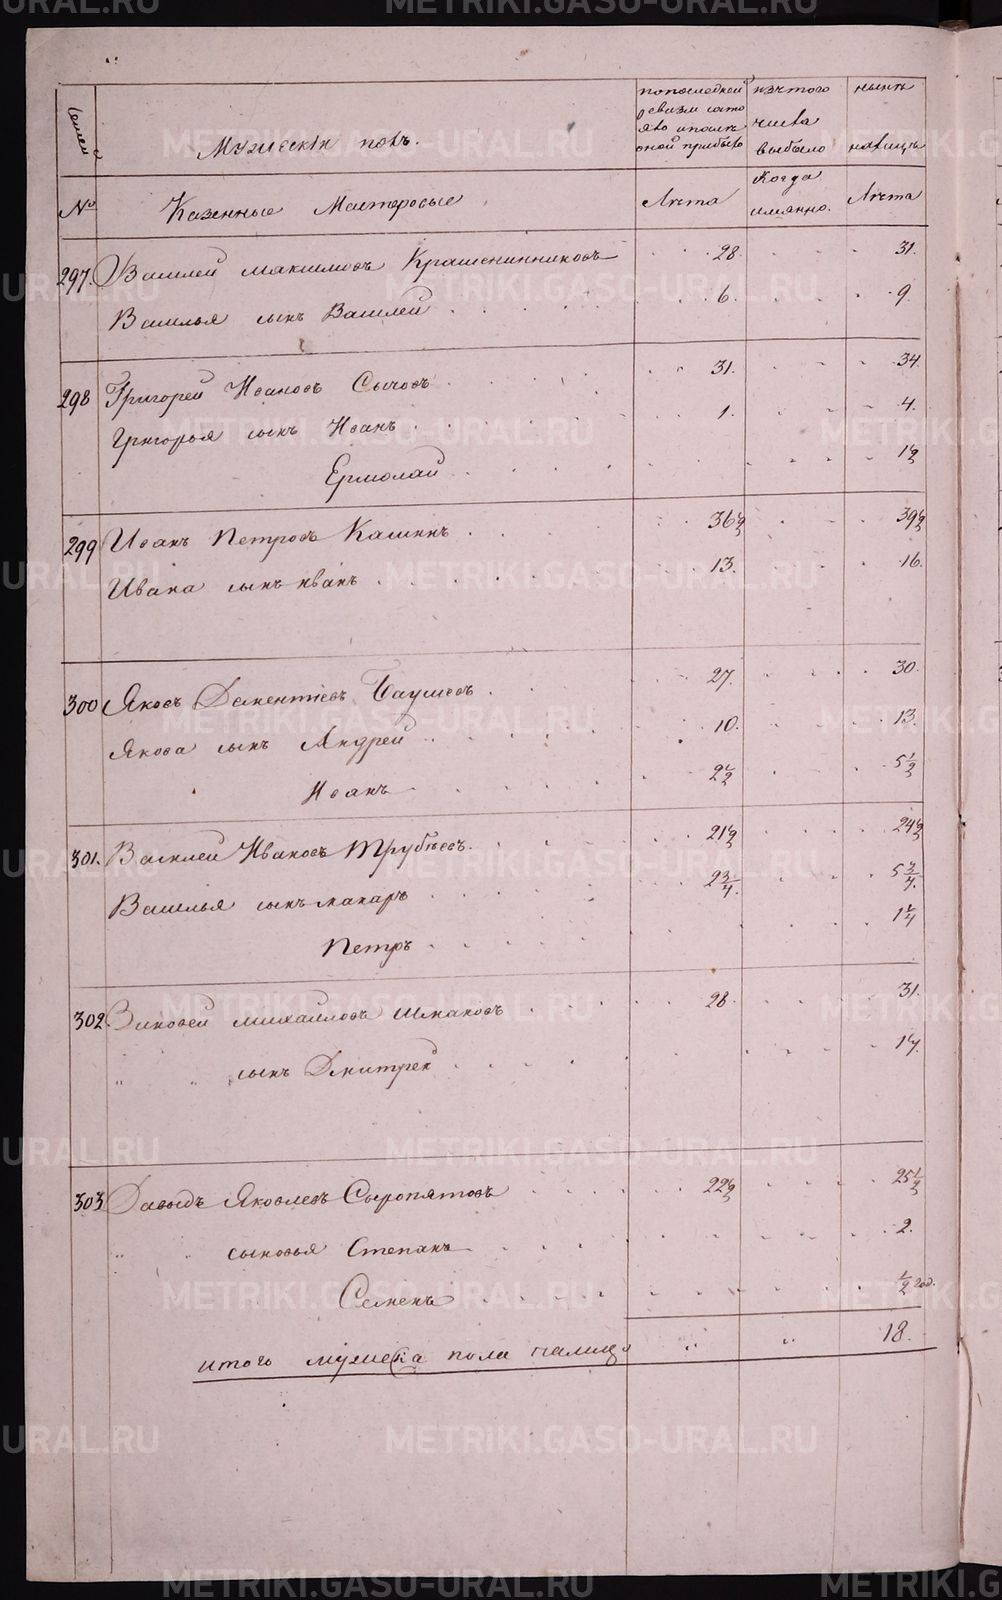 семей
Мужескiй полъ.
попоследней
ревизiи состо
яло ипосле
оной прибыло
изчтого
числа
выбыло
ныне
налицо
№
Казенные Мастеровые
Лета
Когда
имянно.
Лета
297. Василей Максимовъ Крашенинниковъ 28. 31.
Василья сынъ Василей 6. 9.
298 Григорей Ивановъ Сычовъ 31. 34.
Григорья сынъ Иванъ 1. 4.
Ермолай 1½
299 Иванъ Петровъ Кашинъ 36½ 39½
Ивана сынъ иванъ 13. 16.
300 Яковъ Дементiевъ Баушевъ 27. 30.
Якова сынъ Андрей 10. 13.
Иванъ 2½ 5½
301. Василей Ивановъ Трубеевъ 21½ 24½
Василья сынъ макаръ 2¾. 5¾.
Петръ 1¼
302 Зиновей михайловъ Шмаковъ 28. 31.
" " сынъ Дмитрей 1¼.
303 Давыдъ Яковлевъ Сыропятовъ 22½ 25½
" " сыновья Степанъ 2.
Семенъ ½ год.
итого мужеска пола налицо " " 18.
METRIKI.GASO-URAL.RU